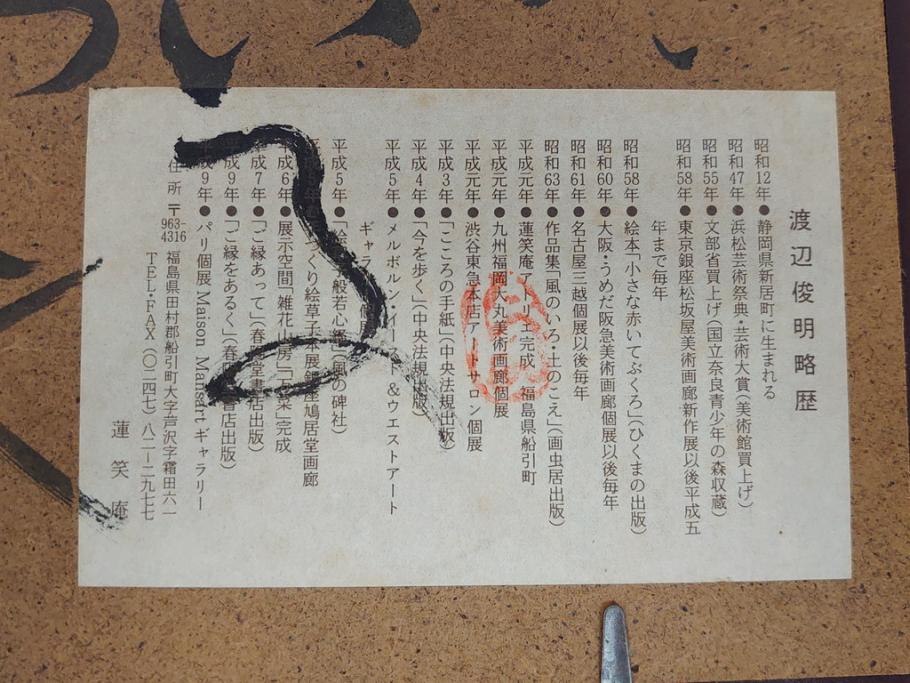 渡辺俊明略歴
昭和12年●静岡県新居町に生まれる
昭和47年●浜松芸術祭典・芸術大賞（美術館買上げ）
昭和55年●文部省買上げ（国立奈良青少年の森収蔵）
昭和58年●東京銀座松坂屋美術画廊新作展以後平成五
年まで毎年
昭和58年●絵本「小さな赤いてぶくろ」（ひくまの出版）
昭和60年●大阪・うめだ阪急美術画廊個展以後毎年
昭和61年●名古屋三越個展以後毎年
昭和63年●作品集「風のいろ・土のこえ」（画虫居出版）
平成元年●蓮笑庵アトリエ完成 福島県船引町
平成元年●九州福岡大丸美術画廊個展
平成元年●渋谷東急本店アートサロン個展
平成3年●「こころの手紙」（中央法規出版）
平成4年●「今を歩く」（中央法規出版）
平成5年●メルボルン・イースト＆ウエストアート
ギャラリー
平成5年●「絵 般若心経」（風の碑社）
づくり絵草子 展 座鳩居堂画廊
平成6年●展示空間「雑花山房」 完成
平成7年●「ご縁あって」（春 堂書店出版）
平成9年●「ご縁をあるく」（春 書店出版）
平成9年●パリ個展 Maison Mansart ギャラリー
住所 〒963-4316 福島県田村郡船引町大字芦沢字霜田六一
TEL・FAX（〇二四七）八二―二九七七
蓮笑庵